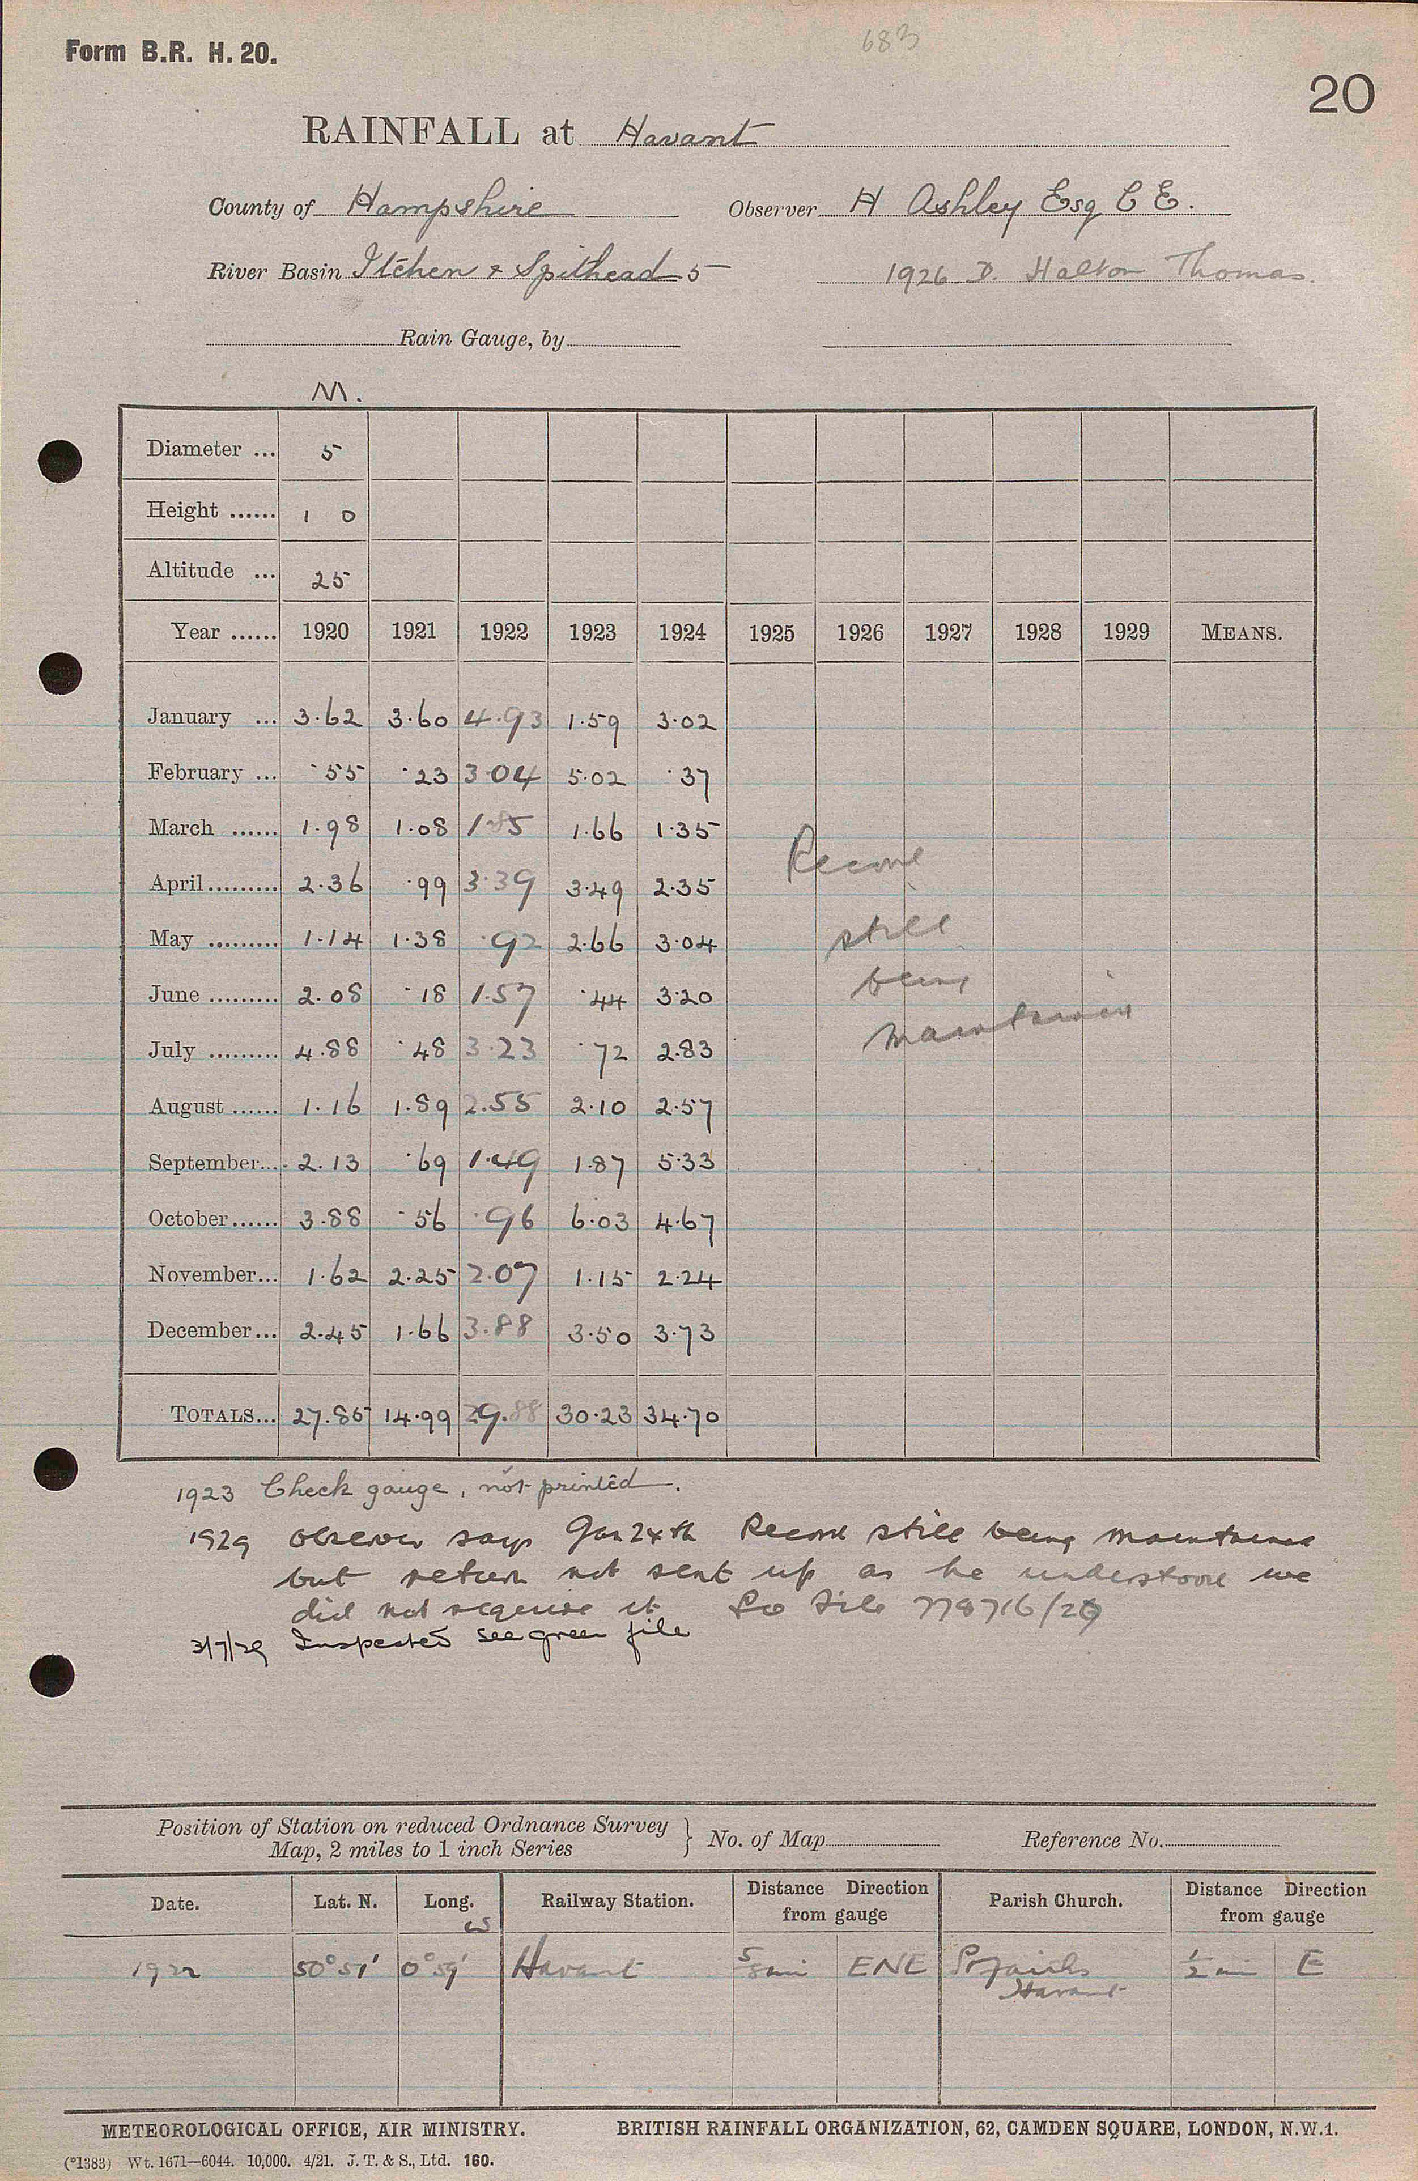 Form B.R. H. 20.
683
20
RAINFALL at Havant
County of Hampshire Observer H Ashley Esq C E.
River Basin Itchen & Spithead 5 1926 D. Halton Thomas.
Rain Gauge, by
M.
Diameter ... 5
Height ...... 1 0
Altitude ... 25
Year ...... 1920 1921 1922 1923 1924 1925 1926 1927 1928 1929 MEANS.
January ... 3.62 3.60 4.93 1.59 3.02
February ... .55 .23 3.04 5.02 .37
March ...... 1.98 1.08 1.85 1.66 1.35
April......... 2.36 .99 3.39 3.49 2.35
May ......... 1.14 1.38 .92 2.66 3.04
June ......... 2.08 .18 1.57 .44 3.20
July ......... 4.88 .48 3.23 .72 2.83
August ...... 1.16 1.89 2.55 2.10 2.57
September... 2.13 .69 1.49 1.87 5.33
October...... 3.88 .56 .96 6.03 4.67
November... 1.62 2.25 2.07 1.15 2.24
December... 2.45 1.66 3.88 3.50 3.73
TOTALS... 27.85 14.99 29.88 30.23 34.70
Record
still
being
maintained
1923 Check gauge, not printed.
1929 Observer says Jan 24th Record still being maintained
but return not sent up as he understood we
did not require it So file 778716/29
3/7/29 Inspected see green file
Position of Station on reduced Ordnance Survey
Map, 2 miles to 1 inch Series } No. of Map Reference No.
Date. Lat. N. Long. W Railway Station. Distance Direction from gauge Parish Church. Distance Direction from gauge
1922 50° 51' 0° 59' Havant 5/8 mi ENE St Faiths Havant 1/2 mi E
METEOROLOGICAL OFFICE, AIR MINISTRY. BRITISH RAINFALL ORGANIZATION, 62, CAMDEN SQUARE, LONDON, N.W.1.
(*1383) Wt. 1671—6044. 10,000. 4/21. J. T. & S., Ltd. 160.